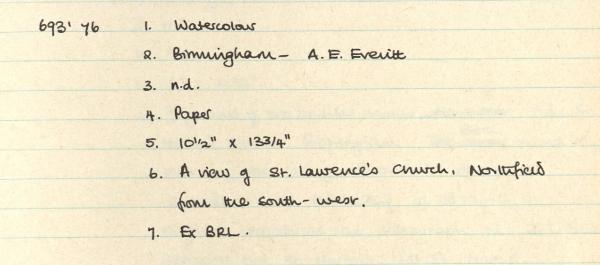 693' 76 1. Watercolour
2. Birmingham - A. E. Everitt
3. n.d.
4. Paper
5. 10 1/2" x 13 3/4"
6. A view of St. Lawrence's Church, Northfield
from the south-west.
7. Ex BRL.